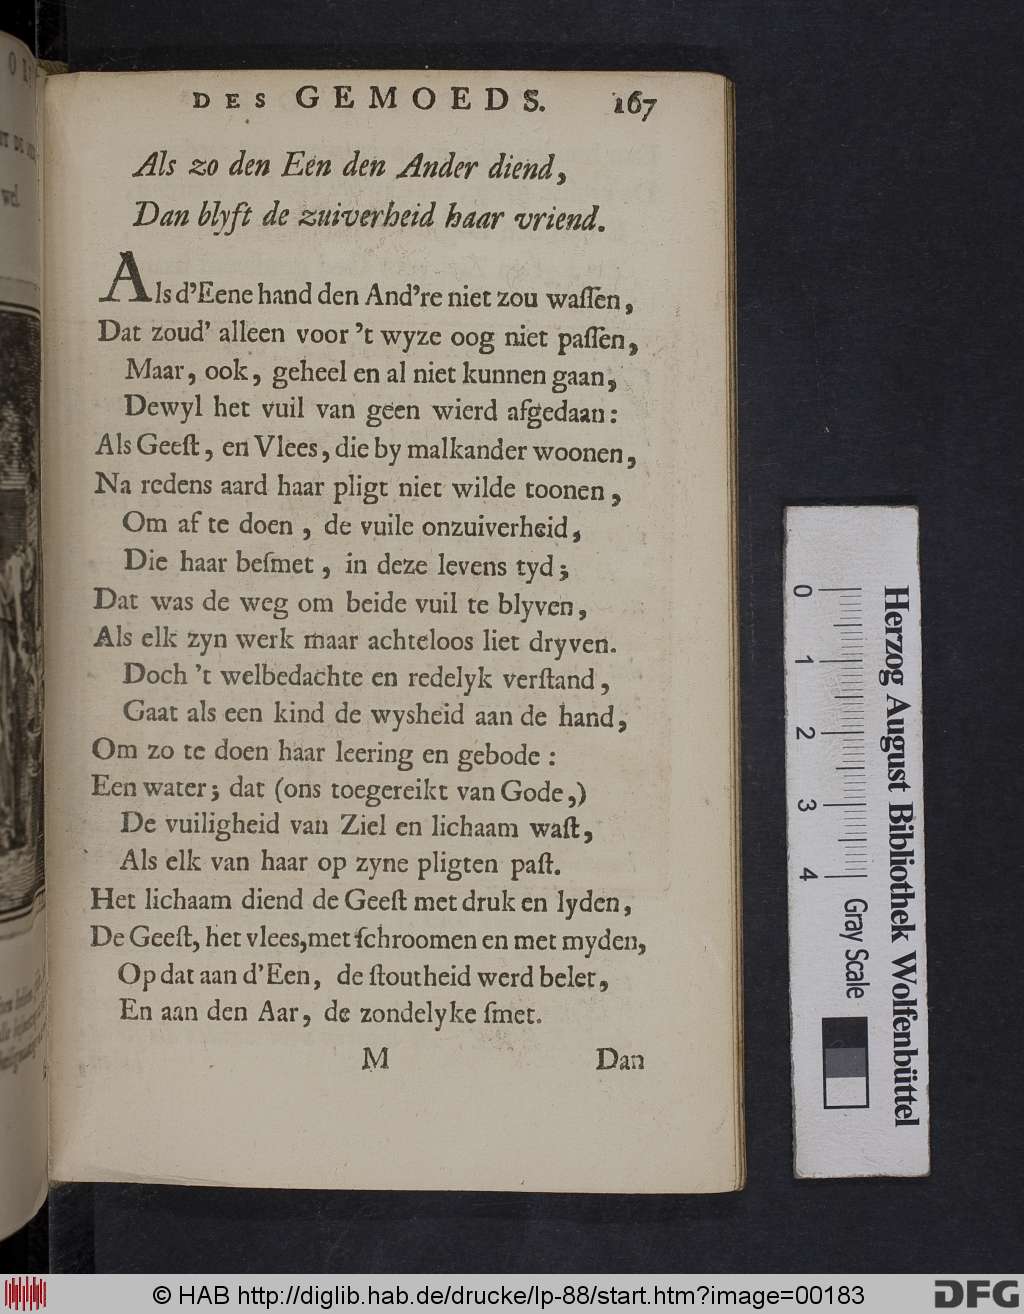 DES GEMOEDS. 167
Als zo den Een den Ander diend,
Dan blyft de zuiverheid haar vriend.
Als d'Eene hand den And're niet zou waſſen,
Dat zoud' alleen voor 't wyze oog niet paſſen,
Maar, ook, geheel en al niet kunnen gaan,
Dewyl het vuil van geen wierd afgedaan:
Als Geeſt, en Vlees, die by malkander woonen,
Na redens aard haar pligt niet wilde toonen,
Om af te doen, de vuile onzuiverheid,
Die haar beſmet, in deze levens tyd;
Dat was de weg om beide vuil te blyven,
Als elk zyn werk maar achteloos liet dryven.
Doch 't welbedachte en redelyk verſtand,
Gaat als een kind de wysheid aan de hand,
Om zo te doen haar leering en gebode:
Een water; dat (ons toegereikt van Gode,)
De vuiligheid van Ziel en lichaam waſt,
Als elk van haar op zyne pligten paſt.
Het lichaam diend de Geeſt met druk en lyden,
De Geeſt, het vlees, met ſchroomen en met myden,
Op dat aan d'Een, de ſtoutheid werd belet,
En aan den Aar, de zondelyke ſmet.
M Dan
0 1 2 3 4
Gray Scale
Herzog August Bibliothek Wolfenbüttel
© HAB http://diglib.hab.de/drucke/lp-88/start.htm?image=00183
DFG